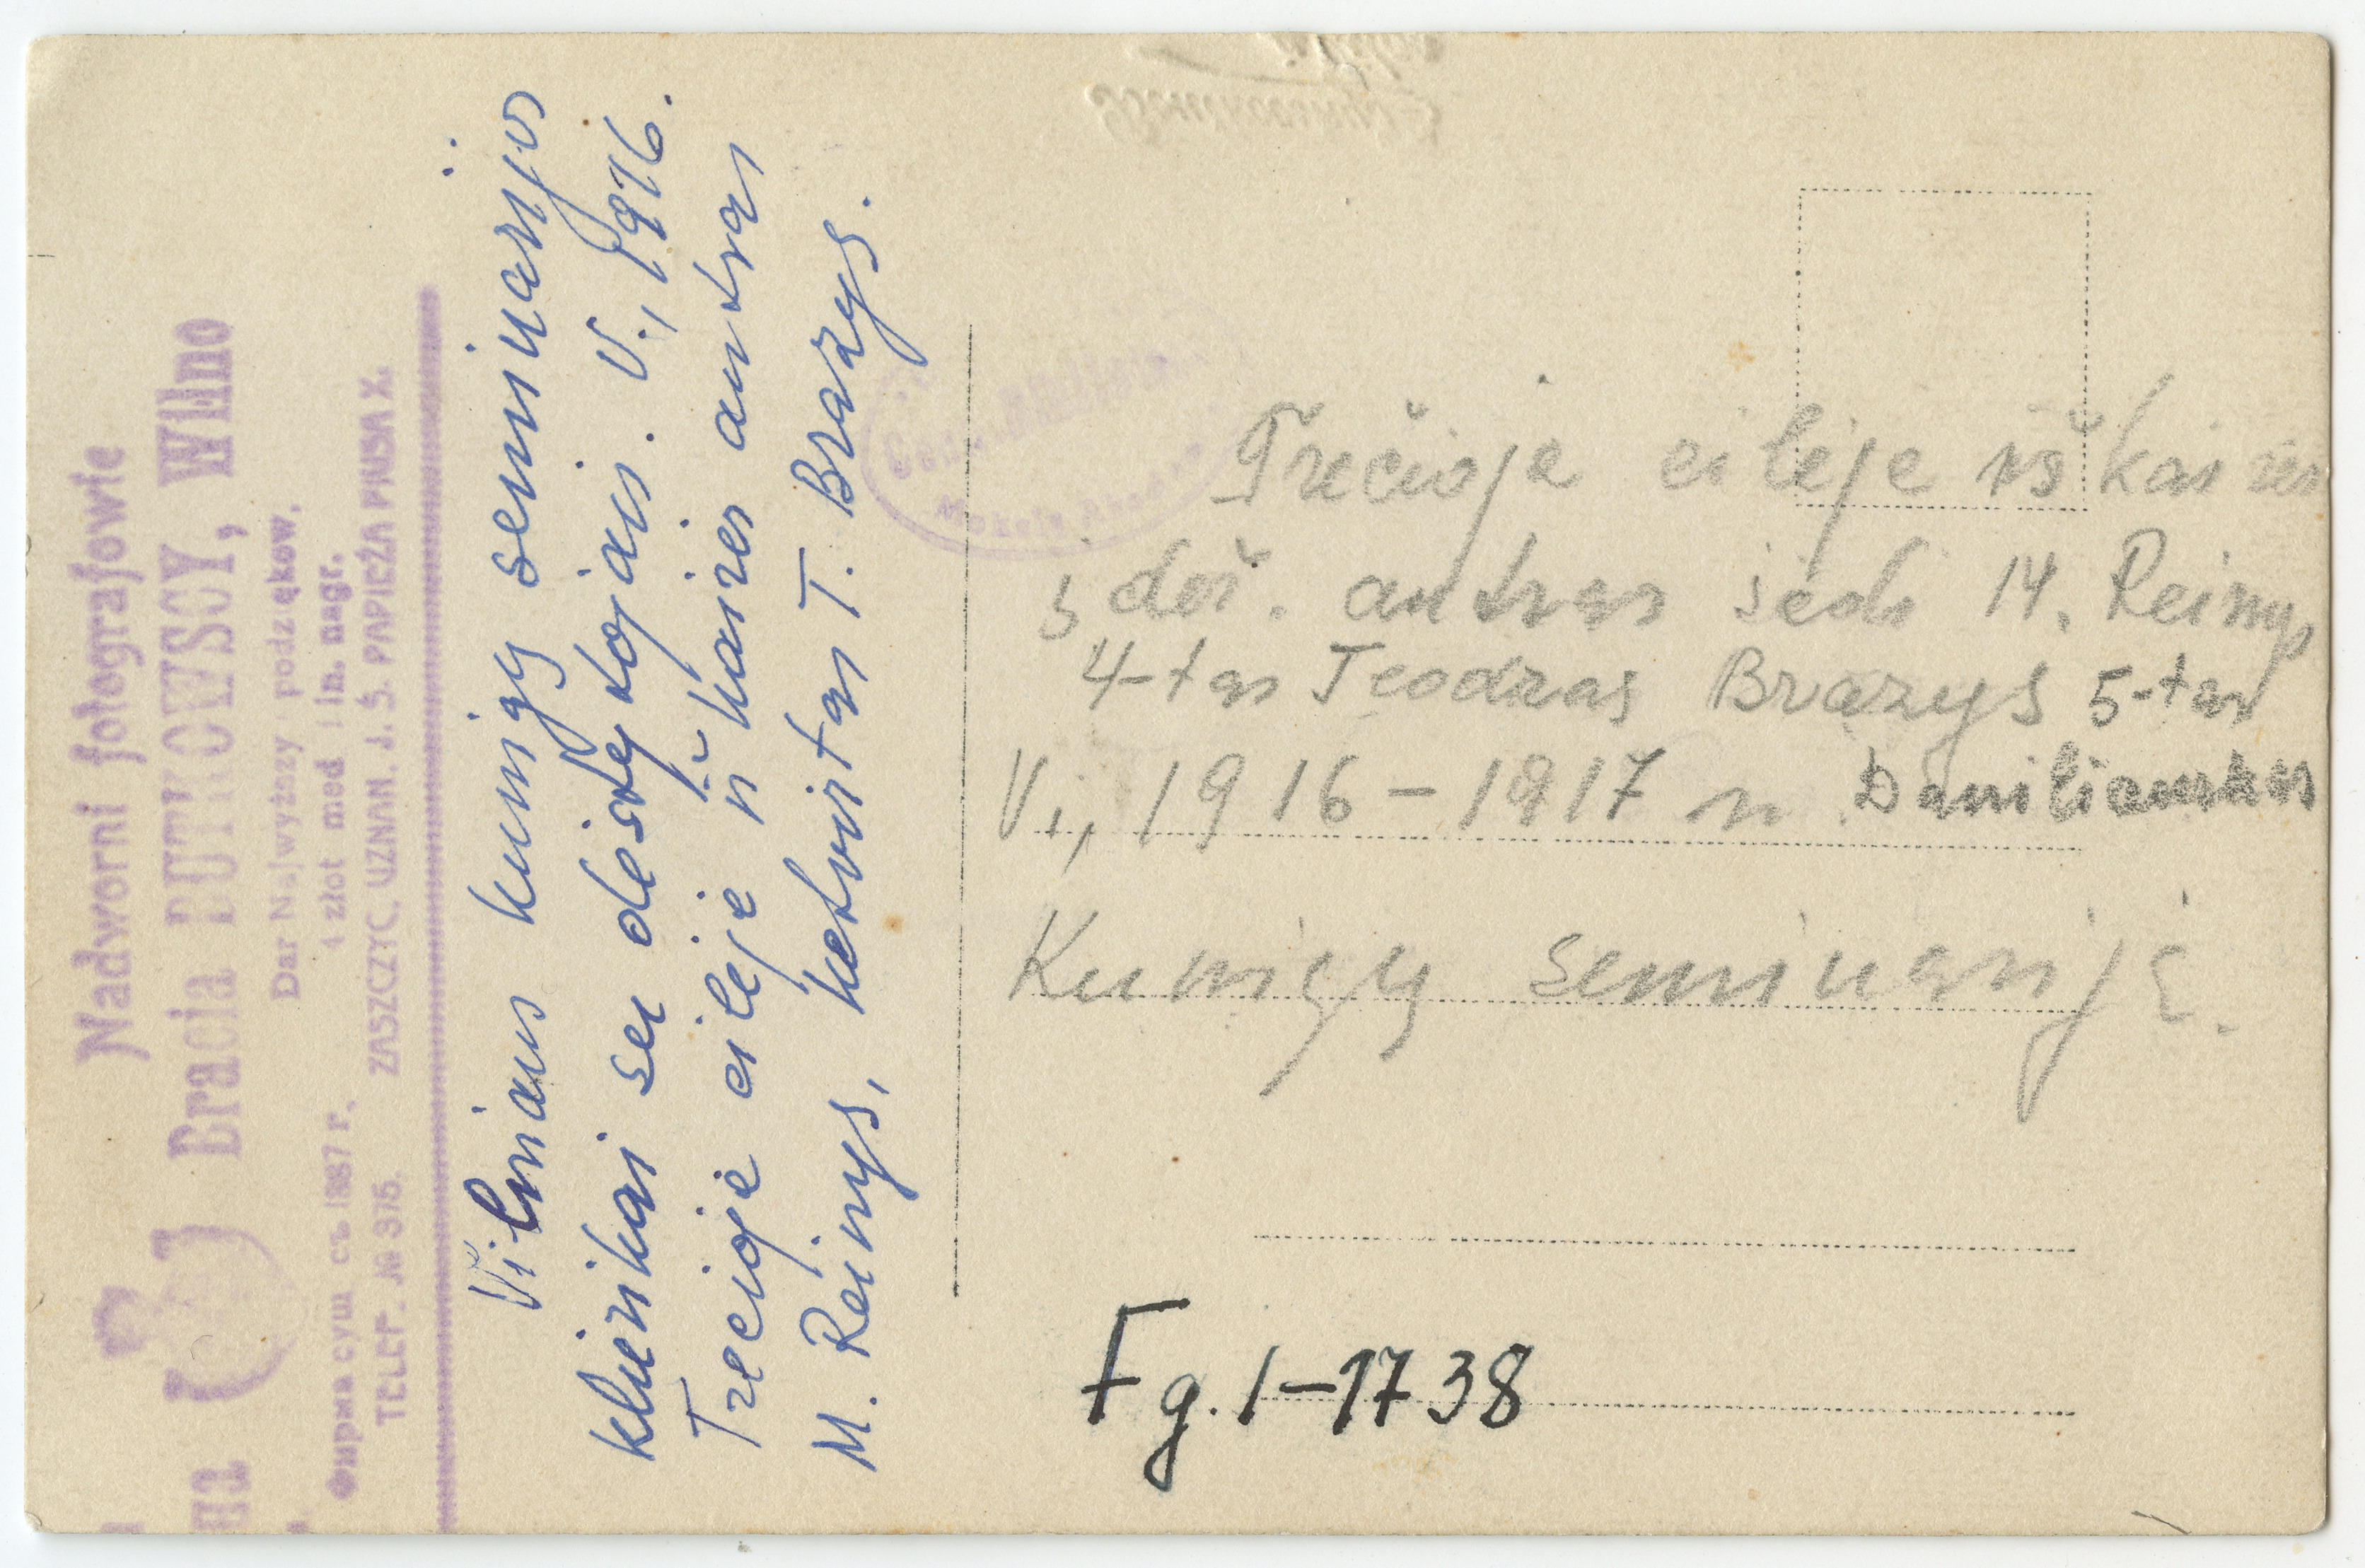 Nadworni fotografowie
Bracia BUTKOWSCY, Wilno
Dar Najwyższy podziękow.
Фирма сущ. съ 1887 г. 4 złot med i in. nagr.
ТЕЛЕF. № 375. ZASZCZYC. UZNAN. J. Ś. PAPIEŻA PIUSA X.
Vilniaus kunigų seminarijos
klierikai su dėstytojais. V., 1916.
Trečioje eilėje iš kairės antras
M. Reinys, ketvirtas T. Brazys.
Trečioje eilėje iš kairės
į deš. antras sėdi M. Reinys
4-tas Teodoras Brazys 5-tas
V., 1916-1917 m. Daniliauskas
Kunigų seminarija.
Fg. 1-1738